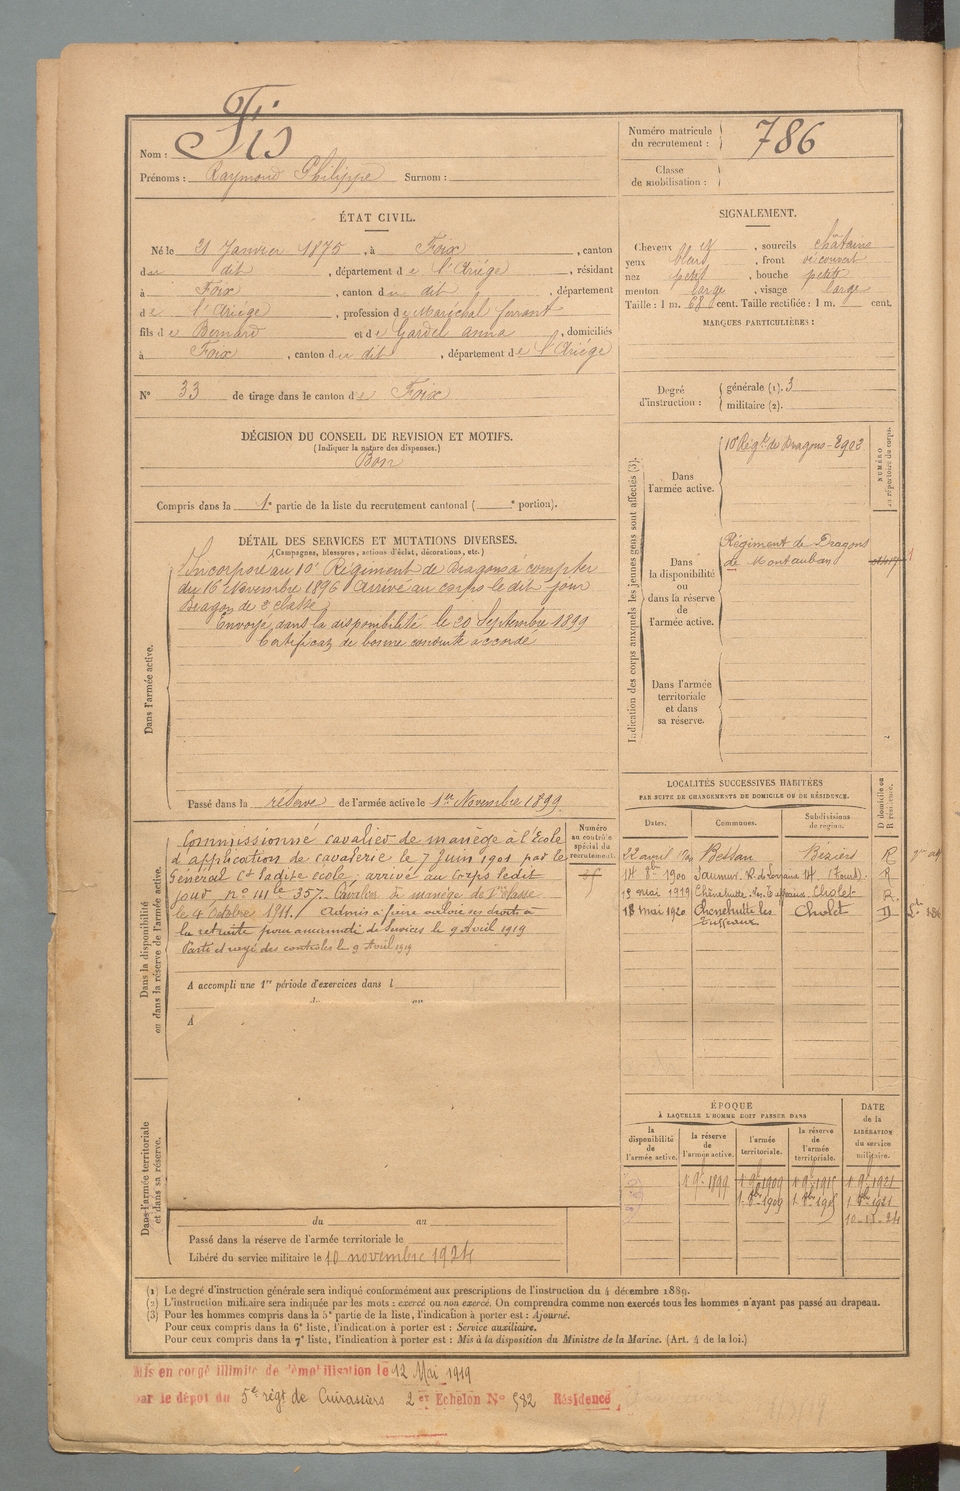 Nom : Fis
Prénoms : Raymond Philippe Surnom :
Numéro matricule du recrutement : 786
Classe de mobilisation :
ÉTAT CIVIL.
Né le 21 Janvier 1875, à Foix, canton
du dit, département de l'Ariége, résidant
à Foix, canton du dit, département
de l'Ariége, profession de Maréchal ferrant
fils de Bernard et de Gardel Anna, domiciliés
à Foix, canton du dit, département de l'Ariége
N° 33 de tirage dans le canton de Foix
SIGNALEMENT.
Cheveux, sourcils châtains
yeux bleus, front découvert
nez petit, bouche petite
menton large, visage large
Taille : 1 m. 68 cent. Taille rectifiée : 1 m. cent.
MARQUES PARTICULIÈRES :
Degré d'instruction : générale (1). 3
militaire (2).
DÉCISION DU CONSEIL DE REVISION ET MOTIFS.
(Indiquer la nature des dispenses.)
Bon
Compris dans la 1e partie de la liste du recrutement cantonal ( e portion).
DÉTAIL DES SERVICES ET MUTATIONS DIVERSES.
(Campagnes, blessures, actions d'éclat, décorations, etc.)
Dans l'armée active.
Incorporé au 10e Régiment de Dragons à compter
du 16 Novembre 1896 Arrivé au corps le dit jour
Dragon de 2e classe
Envoyé dans la disponibilité le 20 Septembre 1899
Certificat de bonne conduite accordé
Passé dans la reserve de l'armée active le 1er Novembre 1899
Indication des corps auxquels les jeunes gens sont affectés (3).
NUMÉRO au répertoire du corps.
Dans l'armée active.
10e Régt de Dragons - 2902
Dans la disponibilité ou dans la réserve de l'armée active.
Régiment de Dragons
de Montauban
Dans l'armée territoriale et dans sa réserve.
Dans la disponibilité ou dans la réserve de l'armée active.
Numéro au contrôle spécial du recrutement.
Commissionné cavalier de manège à l'Ecole
d'application de cavalerie le 7 Juin 1901 par le
Général Ct ladite école, arrivé au corps ledit
jour, n° mle 357. Cavalier de manège de 1re classe
le 4 Octobre 1911. Admis à faire valoir ses droits à
la retraite pour ancienneté de services le 9 Avril 1919
Parti et rayé des contrôles le 9 Avril 1919
A accompli une 1re période d'exercices dans l
A
LOCALITÉS SUCCESSIVES HABITÉES
PAR SUITE DE CHANGEMENTS DE DOMICILE OU DE RÉSIDENCE.
Dates. Communes. Subdivisions de région. D domicile ou R résidence.
22 avril 1900 Bessan Béziers R
14 8bre 1900 Saumur (Tours). R
19 mai 1919 Chênehutte-les-Tuffeaux Cholet R
18 mai 1920 Chenehutte les Tuffeaux Cholet D
ÉPOQUE
À LAQUELLE L'HOMME DOIT PASSER DANS
la disponibilité de l'armée active. la réserve de l'armée active. l'armée territoriale. la réserve de l'armée territoriale. DATE de la LIBÉRATION du service militaire.
1 9bre 1899 1 9bre 1909 1 9bre 1915 1 9bre 1921
1 8bre 1909 1 8bre 1915 1 8bre 1921
10-11-24
Dans l'armée territoriale et dans sa réserve.
du au
Passé dans la réserve de l'armée territoriale le
Libéré du service militaire le 10 novembre 1924
(1) Le degré d'instruction générale sera indiqué conformément aux prescriptions de l'instruction du 4 décembre 1889.
(2) L'instruction militaire sera indiquée par les mots : exercé ou non exercé. On comprendra comme non exercés tous les hommes n'ayant pas passé au drapeau.
(3) Pour les hommes compris dans la 5e partie de la liste, l'indication à porter est : Ajourné.
Pour ceux compris dans la 6e liste, l'indication à porter est : Service auxiliaire.
Pour ceux compris dans la 7e liste, l'indication à porter est : Mis à la disposition du Ministre de la Marine. (Art. 4 de la loi.)
Mis en congé illimité de démobilisation le 12 Mai 1919
par le dépot du 5e régt de Cuirassiers 2 er Echelon N° 582 Résidence